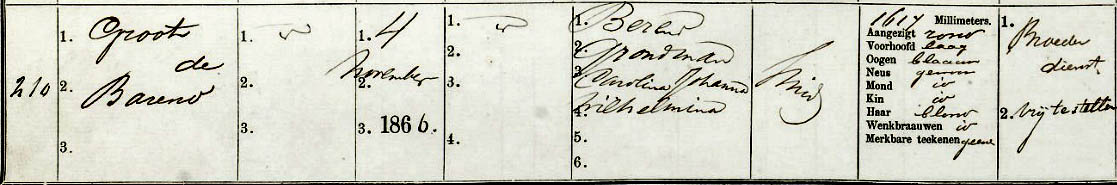 210
1. Groot
de
2. Barend
3.
1.
2.
3.
1. 4
November
2.
3. 1866.
1.
2.
3.
4.
1. Berend
2. Grondman
3. Carolina Johanna
4. Wilhelmina
5.
6.
1617 Millimeters.
Aangezigt rond
Voorhoofd laag
Oogen blaauw
Neus gewoon
Mond id
Kin id
Haar blond
Wenkbraauwen id
Merkbare teekenen geene
1. Broeder
dienst
2. Vrij te stellen